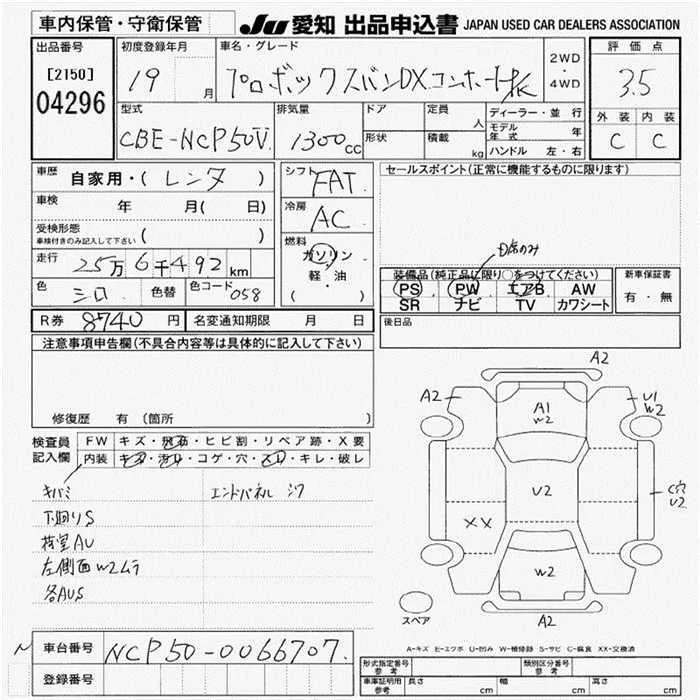 車内保管・守衛保管 JU 愛知 出品申込書 JAPAN USED CAR DEALERS ASSOCIATION
出品番号 初度登録年月 車名・グレード 評価点
[2150] 19 月 プロボックスバンDXコンホ゜ートPK 2WD・4WD 3.5
04296
型式 排気量 ドア 定員 人 ディーラー・並行 外装 内装
CBE-NCP50V 1300cc 形状 積載 kg モデル年式 年 C C
ハンドル 左・右
車歴 自家用・(レンタ) シフト FAT セールスポイント(正常に機能するものに限ります)
車検 年 月( 日) 冷房 AC
受検形態 ( )
車検付きのみ記入して下さい
燃料 ガソリン 軽・油 ( )
走行 25万6千492km
D席のみ
装備品(純正品に限り○をつけてください) 新車保証書
PS PW エアB AW 有・無
SR ナビ TV カワシート
色 シロ 色替 色コード 058
R券 8740円 名変通知期限 月 日 後日品
注意事項申告欄(不具合内容等は具体的に記入して下さい)
修復歴 有 (箇所 )
検査員記入欄 FW キズ・飛石・ヒビ割・リペア跡・X要
内装 キズ・汚れ・コゲ・穴・スレ・キレ・破レ
キバミ エンドパネル ジク
下回りS
荷室AU
左側面W2ムラ
各AUS
A2
A2 A1 W2 U1 W2
U2 C穴 U2
XX
W2
スペア A2
A-キズ E-エクボ U-凹み W-補修跡 S-サビ C-腐食 XX-交換済
車台番号 NCP50-0066707
登録番号
形式指定番号 参考 類別区分番号 参考
車庫証明用 参考 長さ cm 幅 cm 高さ cm